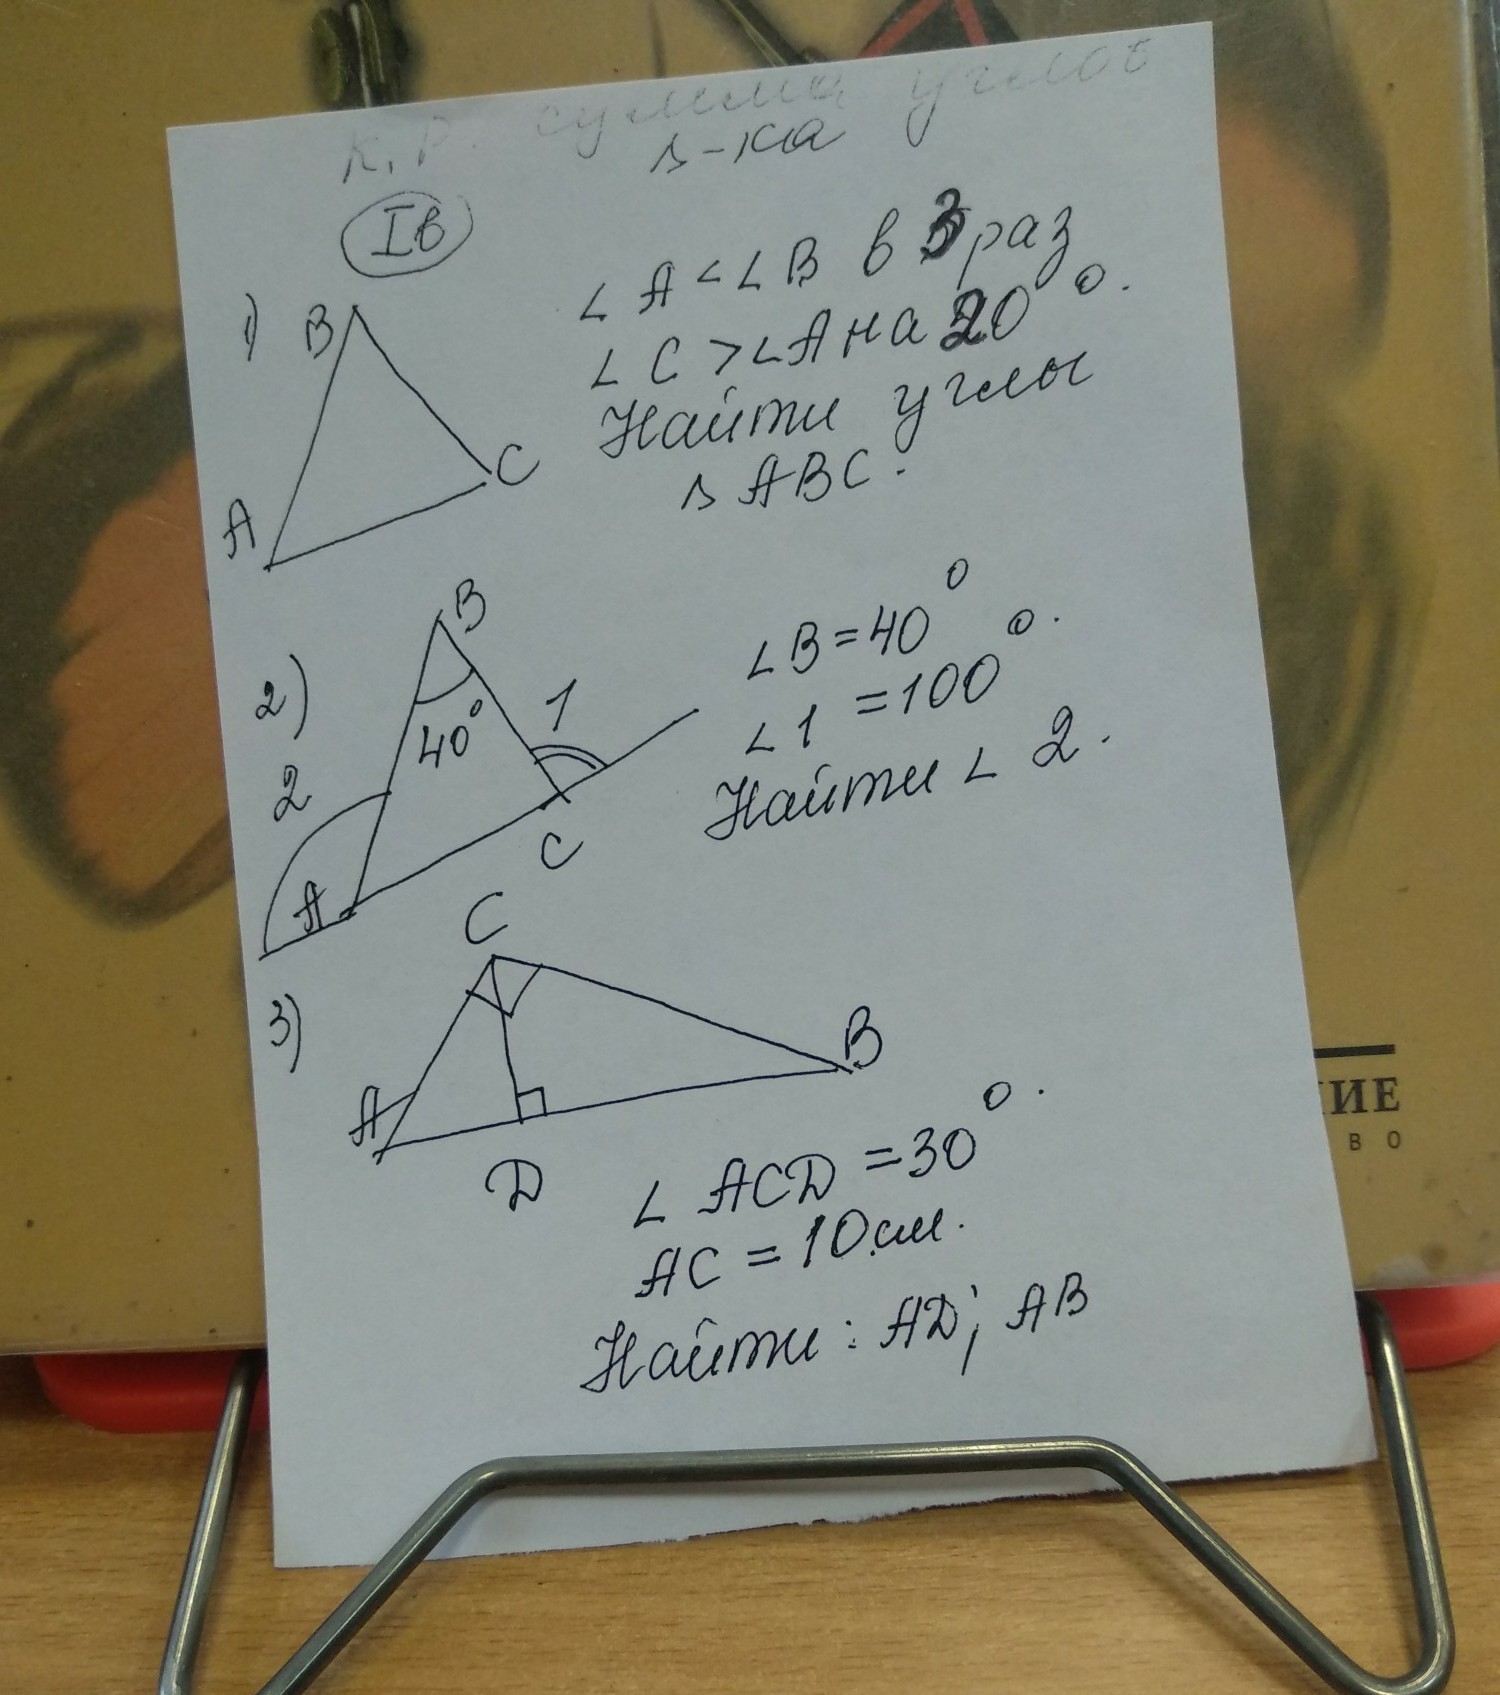 К.Р. сумма углов
Δ-ка
Iв
1)
B
A
C
∠A<∠B в 3 раз
∠C>∠A на 20°.
Найти углы
ΔABC.
2)
B
40°
1
2
A
C
∠B=40°
∠1=100°.
Найти ∠2.
3)
C
A
B
D
∠ACD=30°.
AC=10см.
Найти: AD; AB
ИЕ
ВО